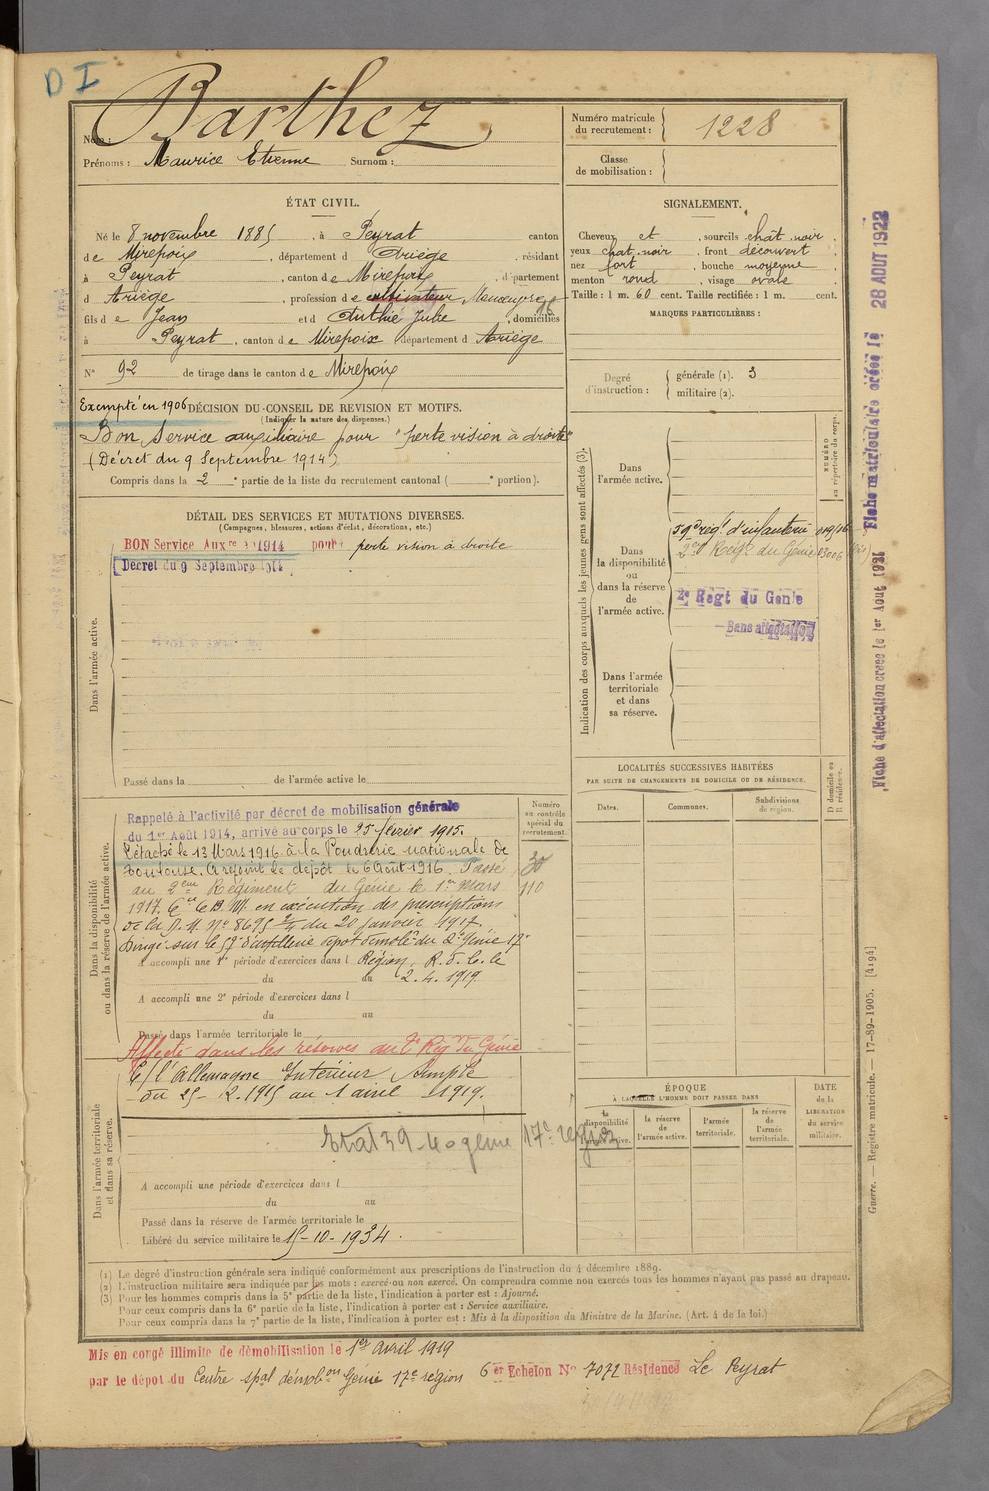 D I
Nom : Barthez
Prénoms : Maurice Etienne Surnom :
Numéro matricule
du recrutement : 1228
Classe
de mobilisation :
ÉTAT CIVIL.
Né le 8 novembre 1885, à Peyrat canton
de Mirepoix, département d Ariège, résidant
à Peyrat, canton de Mirepoix, département
d Ariège, profession de cultivateur
fils de Jean et d Authié Julie, domiciliés
à Peyrat, canton de Mirepoix département d Ariège
N° 92 de tirage dans le canton de Mirepoix
SIGNALEMENT.
Cheveux et, sourcils chât. noir,
yeux chat. noir, front découvert,
nez fort, bouche moyenne,
menton rond, visage ovale
Taille : 1 m. 60 cent. Taille rectifiée : 1 m. cent.
MARQUES PARTICULIÈRES :
Degré
d'instruction :
générale (1). 3
militaire (2).
Exempté en 1906 DÉCISION DU CONSEIL DE REVISION ET MOTIFS.
(Indiquer la nature des dispenses.)
Bon Service auxiliaire pour "perte vision à droite"
(Décret du 9 Septembre 1914)
Compris dans la 2e partie de la liste du recrutement cantonal ( e portion).
DÉTAIL DES SERVICES ET MUTATIONS DIVERSES.
(Campagnes, blessures, actions d'éclat, décorations, etc.)
BON Service Auxre 1914 pour perte vision à droite
Décret du 9 Septembre 1914
Dans l'armée active.
Passé dans la de l'armée active le
Indication des corps auxquels les jeunes gens sont affectés (3).
NUMÉRO
au répertoire du corps.
Dans
l'armée active.
Dans
la disponibilité
ou
dans la réserve
de
l'armée active.
59e régt d'infanterie
2e Régt du Génie
2e Regt du Génie
Sans affectation
Dans l'armée
territoriale
et dans
sa réserve.
LOCALITÉS SUCCESSIVES HABITÉES
PAR SUITE DE CHANGEMENTS DE DOMICILE OU DE RÉSIDENCE.
Dates.
Communes.
Subdivisions
de région.
D domicile ou
R résidence.
Dans la disponibilité
ou dans la réserve de l'armée active.
Numéro
au contrôle
spécial du
recrutement.
30
110
Rappelé à l'activité par décret de mobilisation générale
du 1er Août 1914, arrivé au corps le 25 février 1915.
Détaché le 13 Mars 1916 à la Poudrerie nationale de
Toulouse. A rejoint le dépôt le 6 Août 1916. Passé
au 2eme Régiment du Génie le 1er Mars
1917. en exécution des prescriptions
de la D. M. No 8695 2/4 du 20 Janvier 1917
Dirigé sur le 57e d'artillerie dépôt démobr du 2e Génie 17e
A accompli une 1re période d'exercices dans l Région, R. d. L. le
du au 2.4.1919.
A accompli une 2e période d'exercices dans l
du au
Passé dans l'armée territoriale le
Affecté dans les réserves au 2e Rég du Génie
Dans l'armée territoriale
et dans sa réserve.
C/ l'Allemagne Intérieur Simple
du 25-2.1915 au 1 avril 1919.
Etat 39 40 génie 17e région
A accompli une période d'exercices dans l
du au
Passé dans la réserve de l'armée territoriale le
Libéré du service militaire le 15-10-1934.
ÉPOQUE
À LAQUELLE L'HOMME DOIT PASSER DANS
la
disponibilité
de l'armée active.
la réserve
de
l'armée active.
l'armée
territoriale.
la réserve
de
l'armée
territoriale.
DATE
de la
LIBÉRATION
du service
militaire.
(1) Le degré d'instruction générale sera indiqué conformément aux prescriptions de l'instruction du 4 décembre 1889.
(2) L'instruction militaire sera indiquée par les mots : exercé ou non exercé. On comprendra comme non exercés tous les hommes n'ayant pas passé au drapeau.
(3) Pour les hommes compris dans la 5e partie de la liste, l'indication à porter est : Ajourné.
Pour ceux compris dans la 6e partie de la liste, l'indication à porter est : Service auxiliaire.
Pour ceux compris dans la 7e partie de la liste, l'indication à porter est : Mis à la disposition du Ministre de la Marine. (Art. 4 de la loi.)
Mis en congé illimité de démobilisation le 1er avril 1919
par le dépôt du Centre spal démobon Génie 17e région 6er Echelon No 7072 Résidence Le Peyrat
Fiche d'affectation créée le 1er Aout 1921
Fiche matriculaire créée le 28 AOUT 1922
Guerre. — Registre matricule. — 17-89-1905. [4194]